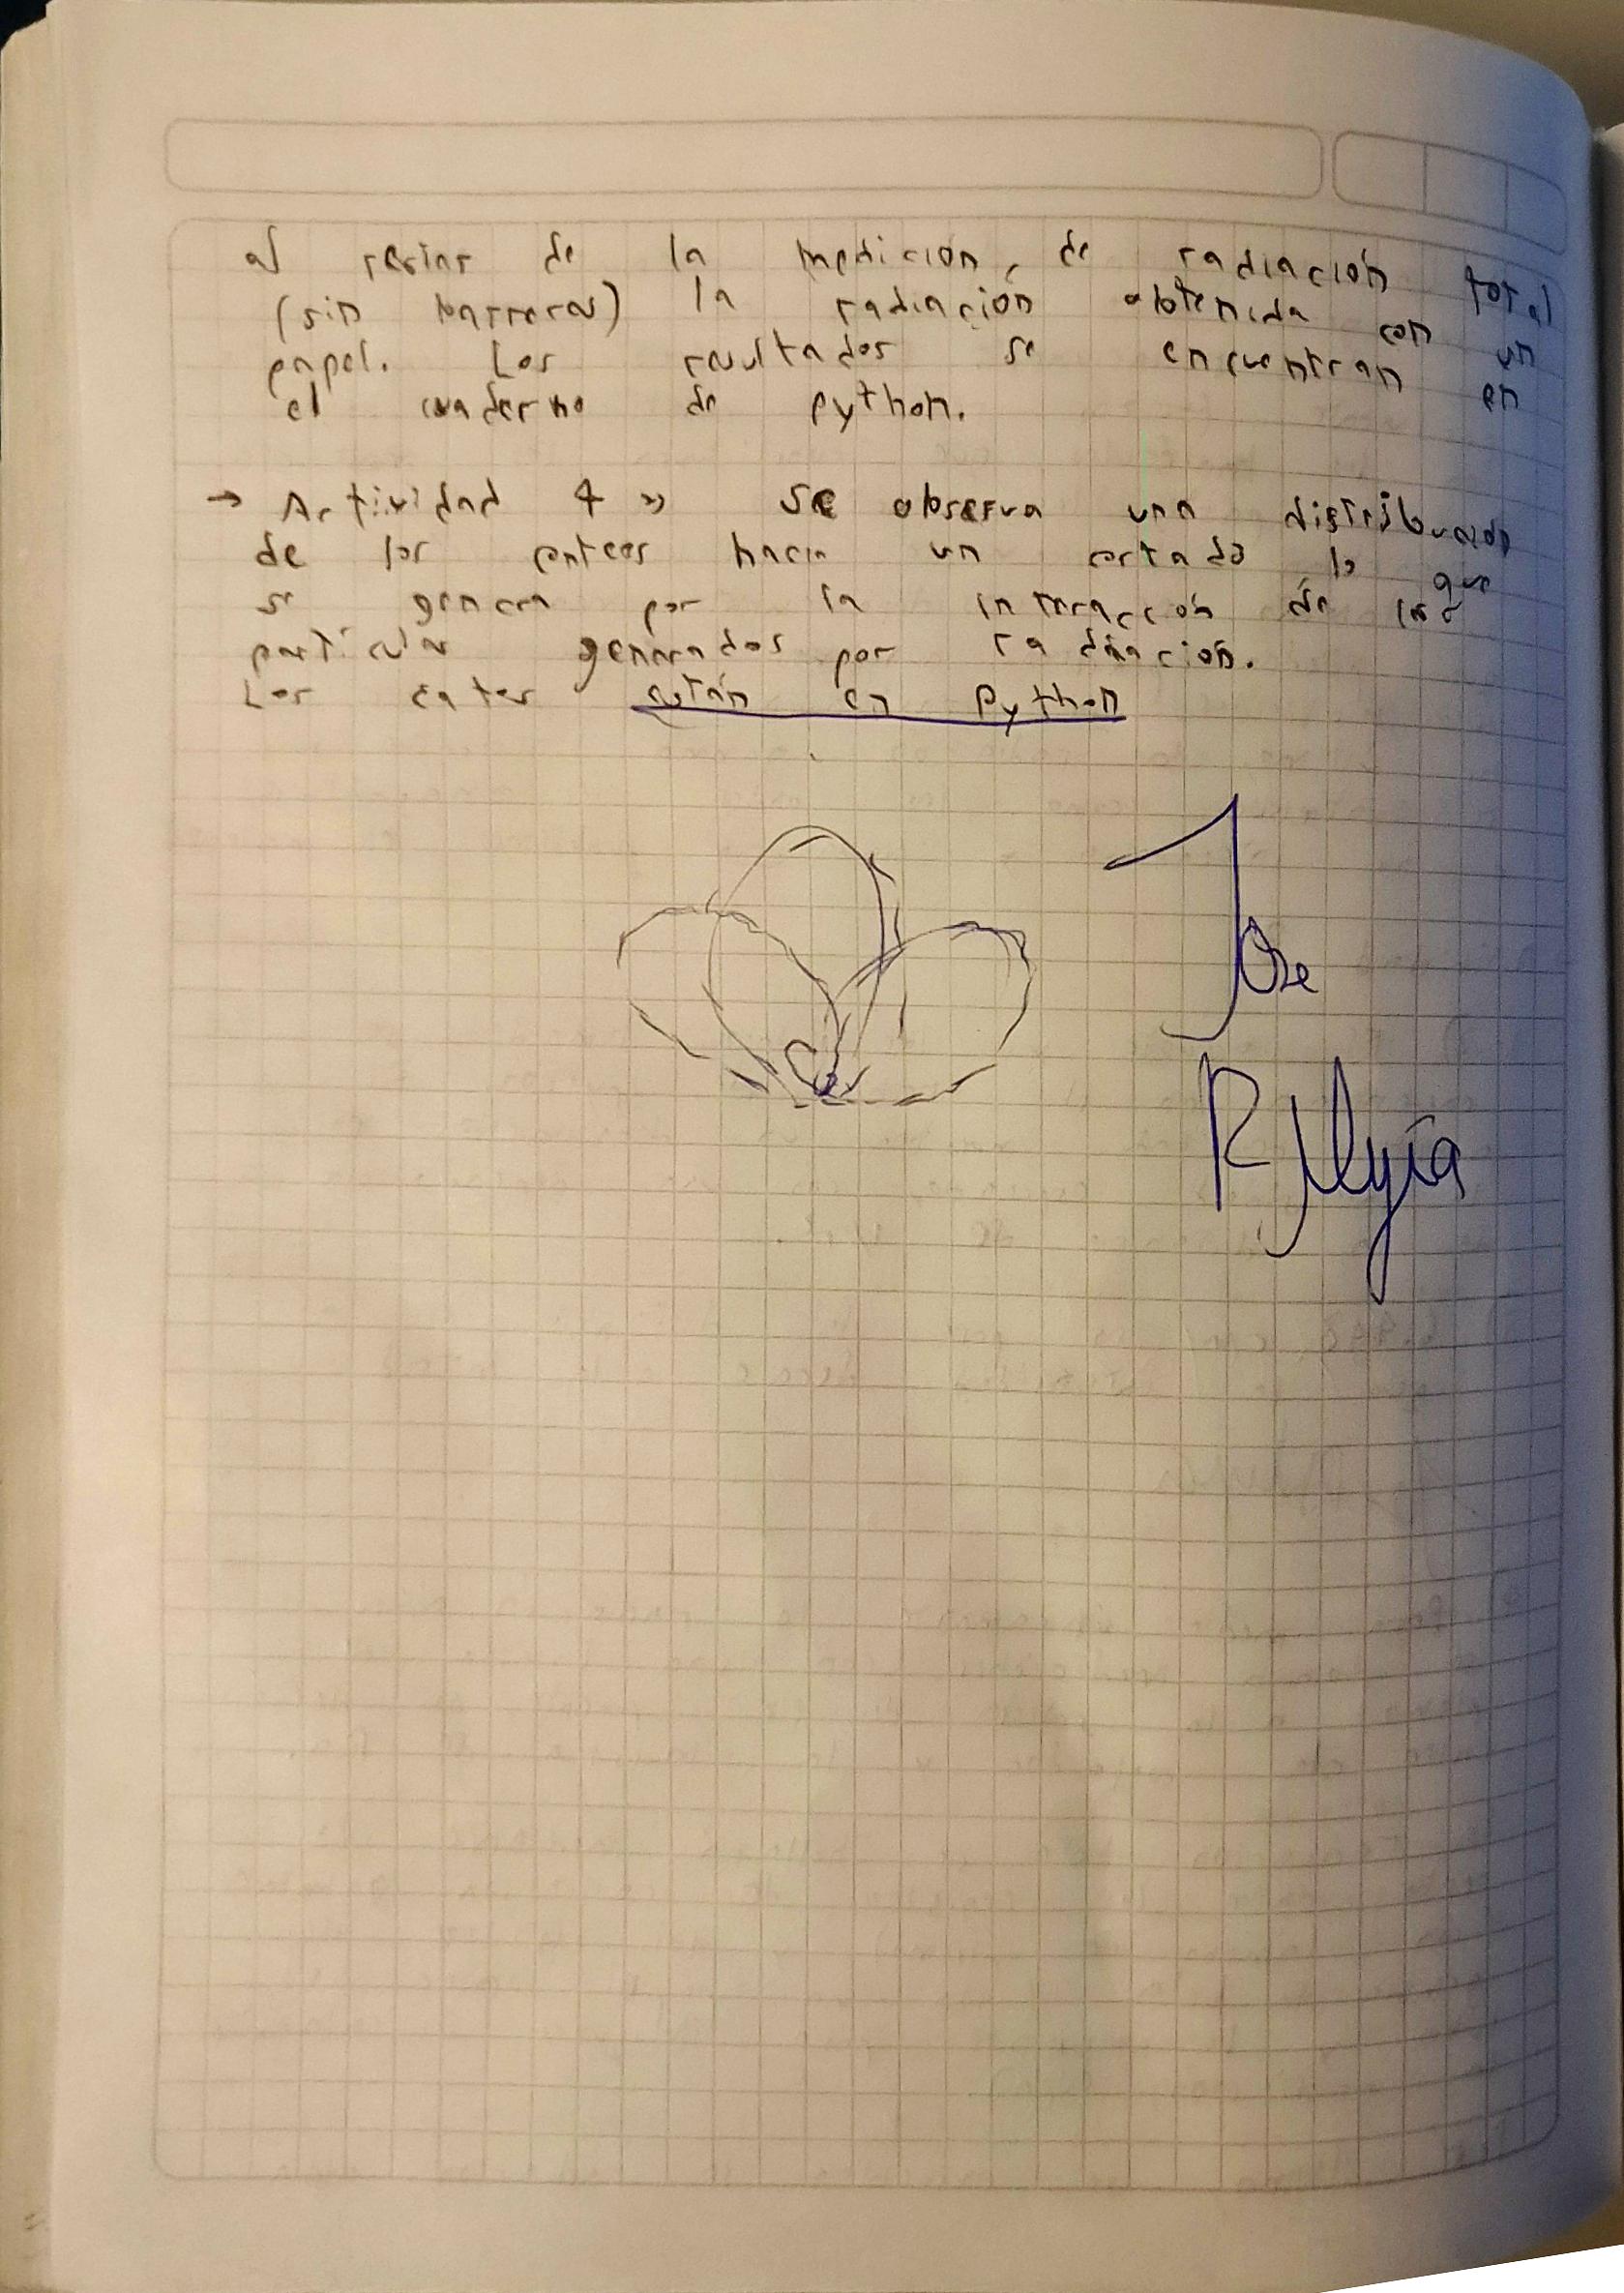 al restar de la medición, de radiación total
(sin barreras) la radiación obtenida con un
papel. Los resultados se encuentran en
el cuaderno de python.
→ Actividad 4 » Se observa una distribución
de los conteos hacia un costado lo que
se genera por la interacción de las
particulas generados por radiación.
Los datos están en Python
Jose
R